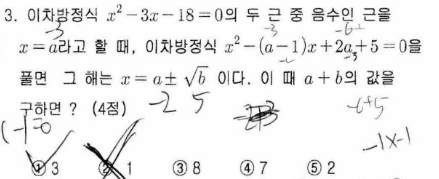 3. 이차방정식 x² - 3x - 18 = 0의 두 근 중 음수인 근을
-3 -3 -6+
x = a라고 할 때, 이차방정식 x² - (a - 1)x + 2a + 5 = 0을
풀면 그 해는 x = a ± √b 이다. 이 때 a + b의 값을
구하면 ? (4점) -2 5 -6+5
-1×-1
① 3 ② 1 ③ 8 ④ 7 ⑤ 2